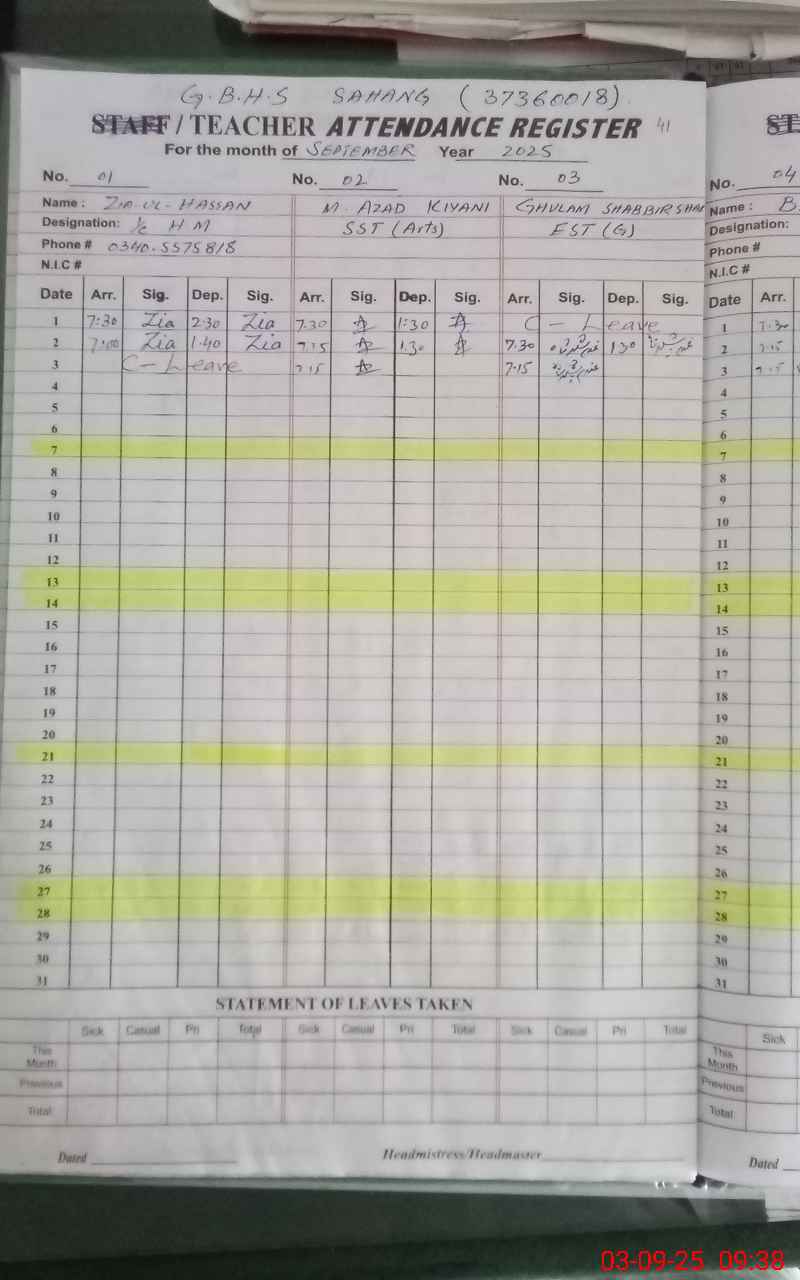 G.B.H.S SAHANG (37360018)
STAFF / TEACHER ATTENDANCE REGISTER 41
For the month of SEPTEMBER Year 2025
No. 01 No. 02 No. 03
Name : ZIA-UL-HASSAN M. AZAD KIYANI GHULAM SHABBIR SHAH
Designation: I/c HM SST (Arts) EST (G)
Phone # 0340-5575818
N.I.C #
Date Arr. Sig. Dep. Sig. Arr. Sig. Dep. Sig. Arr. Sig. Dep. Sig.
1 7:30 Zia 2:30 Zia 7:30 1:30 C - Leave
2 7:00 Zia 1:40 Zia 7:15 1:30 7:30 130
3 C - Leave 7:15 7:15
4
5
6
7
8
9
10
11
12
13
14
15
16
17
18
19
20
21
22
23
24
25
26
27
28
29
30
31
STATEMENT OF LEAVES TAKEN
Sick Casual Pri Total Sick Casual Pri Total Sick Casual Pri Total
This Month
Previous
Total
Dated Headmistress/Headmaster
ST
No. 04
Name : B.
Designation:
Phone #
N.I.C #
Date Arr.
1 7:30
2 7:15
3 7:15
4
5
6
7
8
9
10
11
12
13
14
15
16
17
18
19
20
21
22
23
24
25
26
27
28
29
30
31
Sick
This Month
Previous
Total
Dated
03-09-25 09:38